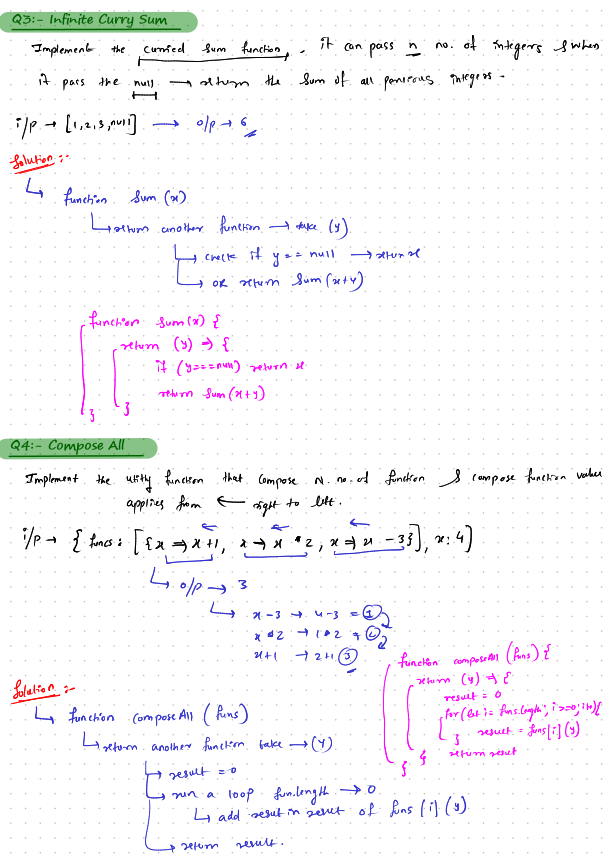 Q3:- Infinite Curry Sum
Implement the curried sum function, it can pass n no. of integers & when
it pass the null → return the sum of all previous integers -
i/p → [1,2,3,null] → o/p → 6
Solution :-
function sum (x)
return another function → take (y)
check if y == null → return x
or return sum(x+y)
function sum(x) {
return (y) => {
if (y===null) return x
return sum(x+y)
}
}
Q4:- Compose All
Implement the utlity function that compose N. no. of function & compose function value
applies from ← right to left.
i/p → { funcs : [{x => x+1, x → x * 2, x => x -3}], x: 4]
o/p → 3
x-3 → 4-3 = 1
x*2 → 1*2 = 2
x+1 → 2+1 3
function composeAll (funs) {
return (y) => {
result = 0
for (let i = funs.length; i>=0; i++) {
result = funs[i](y)
}
return result
}
}
Solution :-
function composeAll (funs)
return another function take → (y)
result = 0
run a loop fun.length → 0
add result in result of funs [i] (y)
return result.